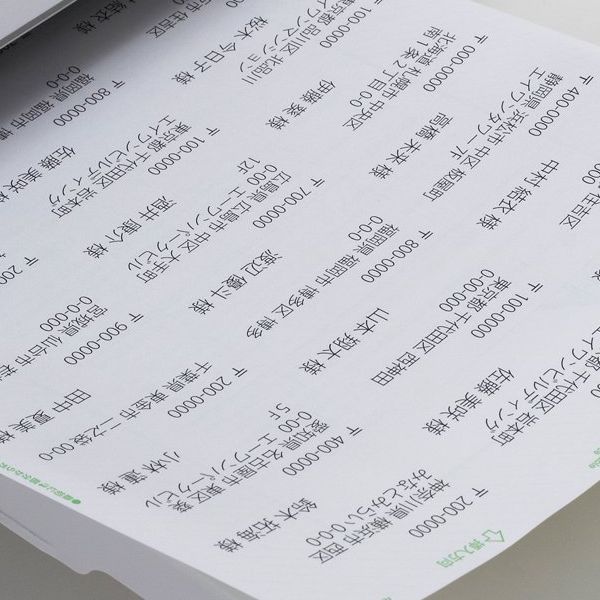 結衣 様
住吉区
〒000-0000
東京都 品川区 北品川
エイワンマンション
桜木 今日子 様
〒800-0000
福岡県 福岡市 博
0-0-0
佐藤 美咲 様
〒000-0000
北海道 札幌市 中央区
南1条2丁目 0-0
伊藤 葵 様
〒100-0000
東京都 千代田区 岩本町
エイワンビルディング
酒井 康介 様
〒200
〒400-0000
静岡県 浜松市 中区 板屋町
エイワンタワー 7F
高橋 未来 様
〒700-0000
広島県 広島市 中区 大手町
0-00 エーワンパークビル
12F
渡辺 優斗 様
〒900-0000
宮城県 仙台市
0-0-000
田中 夏美 様
住吉区
中村 結衣 様
〒800-0000
福岡県 福岡市 博多区 博多
0-0-0
山本 翔太 様
〒200-0000
千葉県 東金市 二之袋 00-0
小林 蓮 様
〒100-0000
東京都 千代田区 西神田
0-00-000
佐藤 美咲 様
〒400-0000
愛知県 名古屋市 東区 葵
0-00 エーワンパークビル
5F
鈴木 拓海 様
千代田区 岩本町
エイワンビルディング
様
〒200-0000
神奈川県 横浜市 西区
みなとみらい 0-0-0
挿入方向